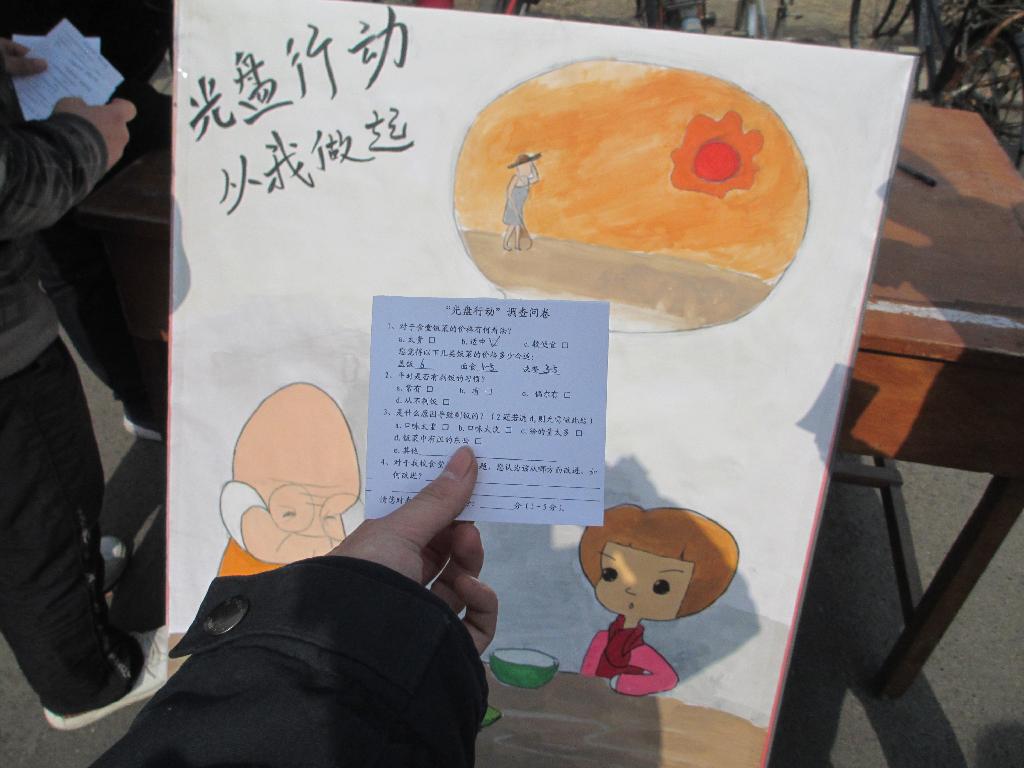 光盘行动
从我做起
“光盘行动”调查问卷
1、对于食堂饭菜的价格有何看法？
a. 太贵 □ b. 适中 ✓ c. 较便宜 □
您觉得以下几类饭菜的价格多少合适：
盖饭 6 面食 4-5
2、平时是否有剩饭的习惯？
a. 常有 □ b. 有 □ c. 偶尔有 □
d. 从不剩饭 □
3、是什么原因导致剩饭的？（2题若选d，则无需做此题）
a. 口味太重 □ b. 口味太淡 □ c. 给的量太多 □
d. 饭菜中有 的东西 □
e. 其他
4、对于我校食堂 题，您认为该从哪方面改进，如
何改进？
请您对 分（1-5分）。